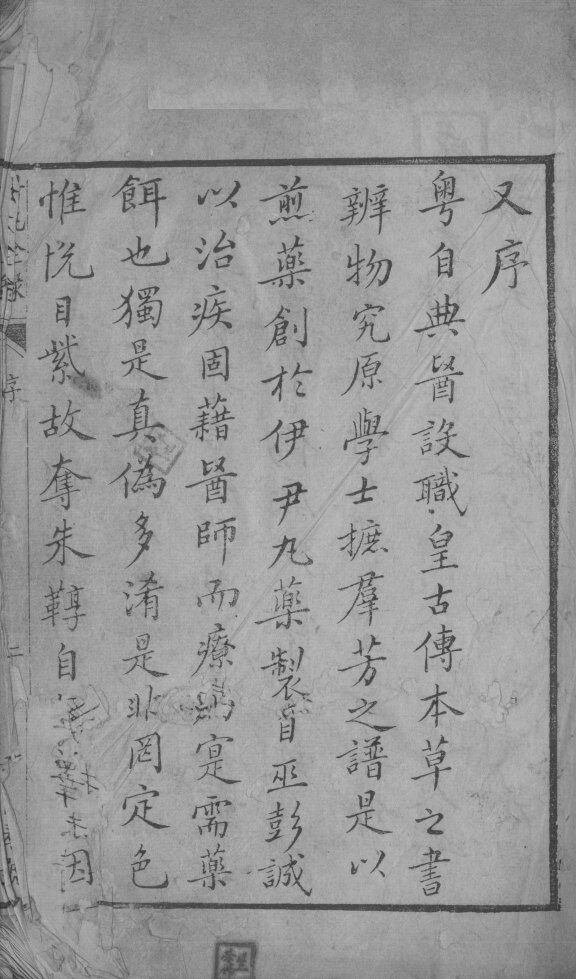 又序
粤自典醫設職皇古傳本草之書
辨物究原學士摭羣芳之譜是以
煎藥創於伊尹丸藥製自巫彭誠
以治疾固藉醫師而療病寔需藥
餌也獨是真偽多淆是非罔定色
惟悦目紫故奪朱鞟自
因
序
二